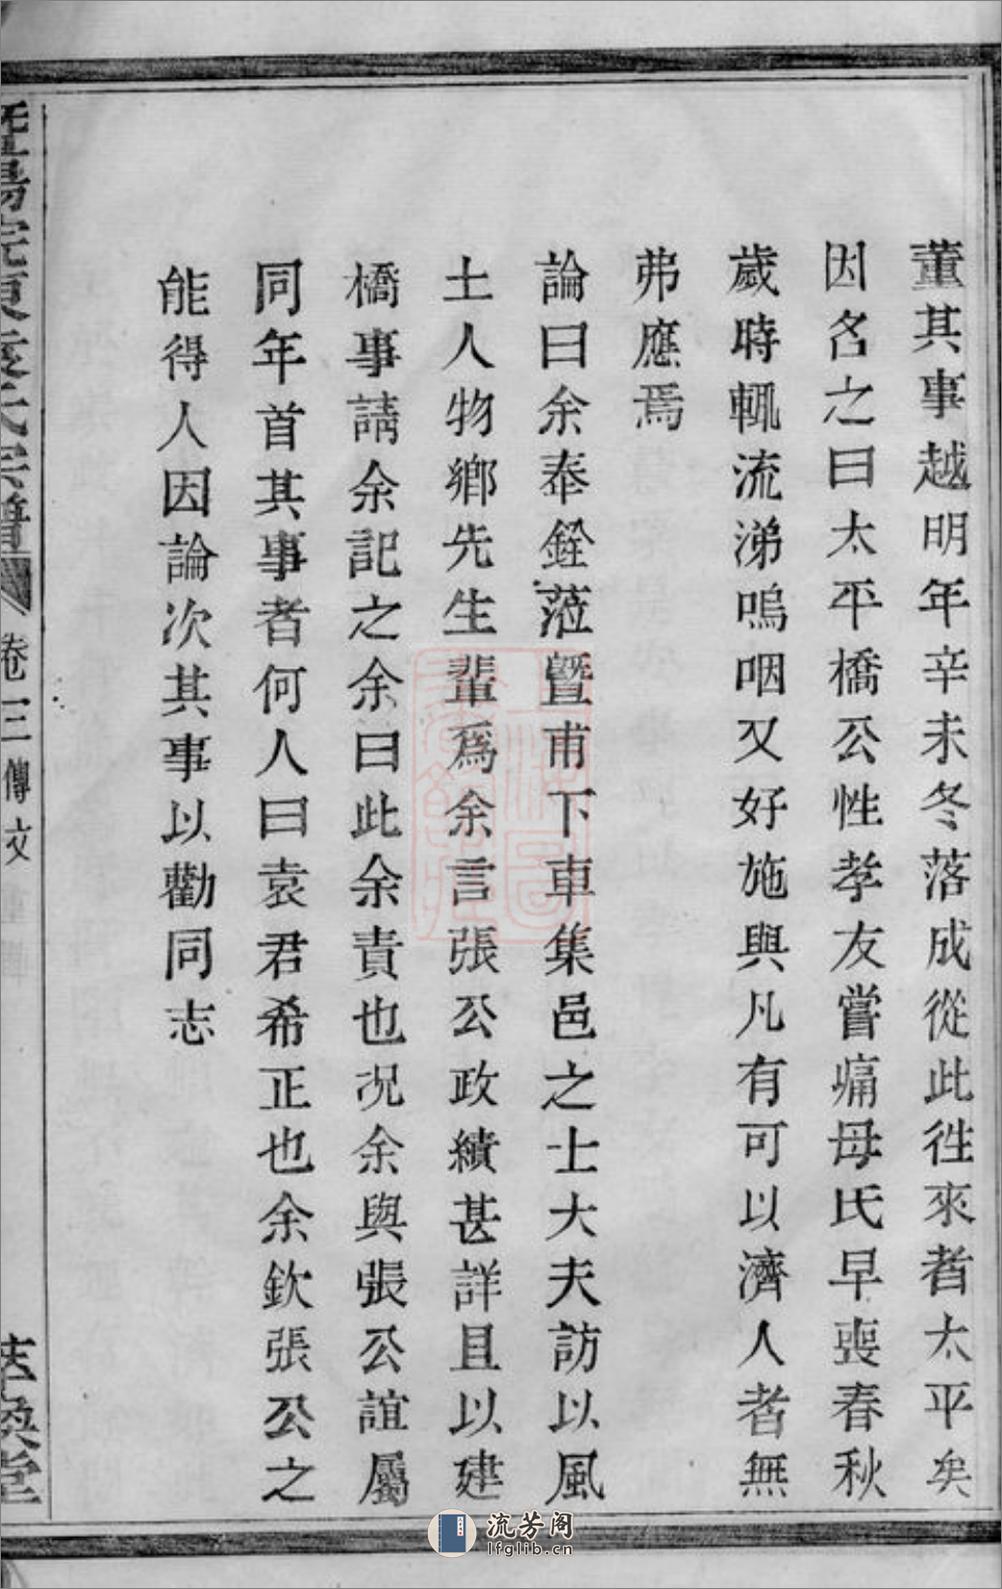 董其事越明年辛未冬落成從此徃來者太平矣
因名之曰太平橋公性孝友嘗痛母氏早喪春秋
歲時輒流涕嗚咽又好施與凡有可以濟人者無
弗應焉
論曰余奉銓蒞暨甫下車集邑之士大夫訪以風
土人物鄉先生輩爲余言張公政績甚詳且以建
橋事請余記之余曰此余責也况余與張公誼屬
同年首其事者何人曰袁君希正也余欽張公之
能得人因論次其事以勸同志
宗譜
卷三 傳文
堂
流芳阁
lfglib.cn